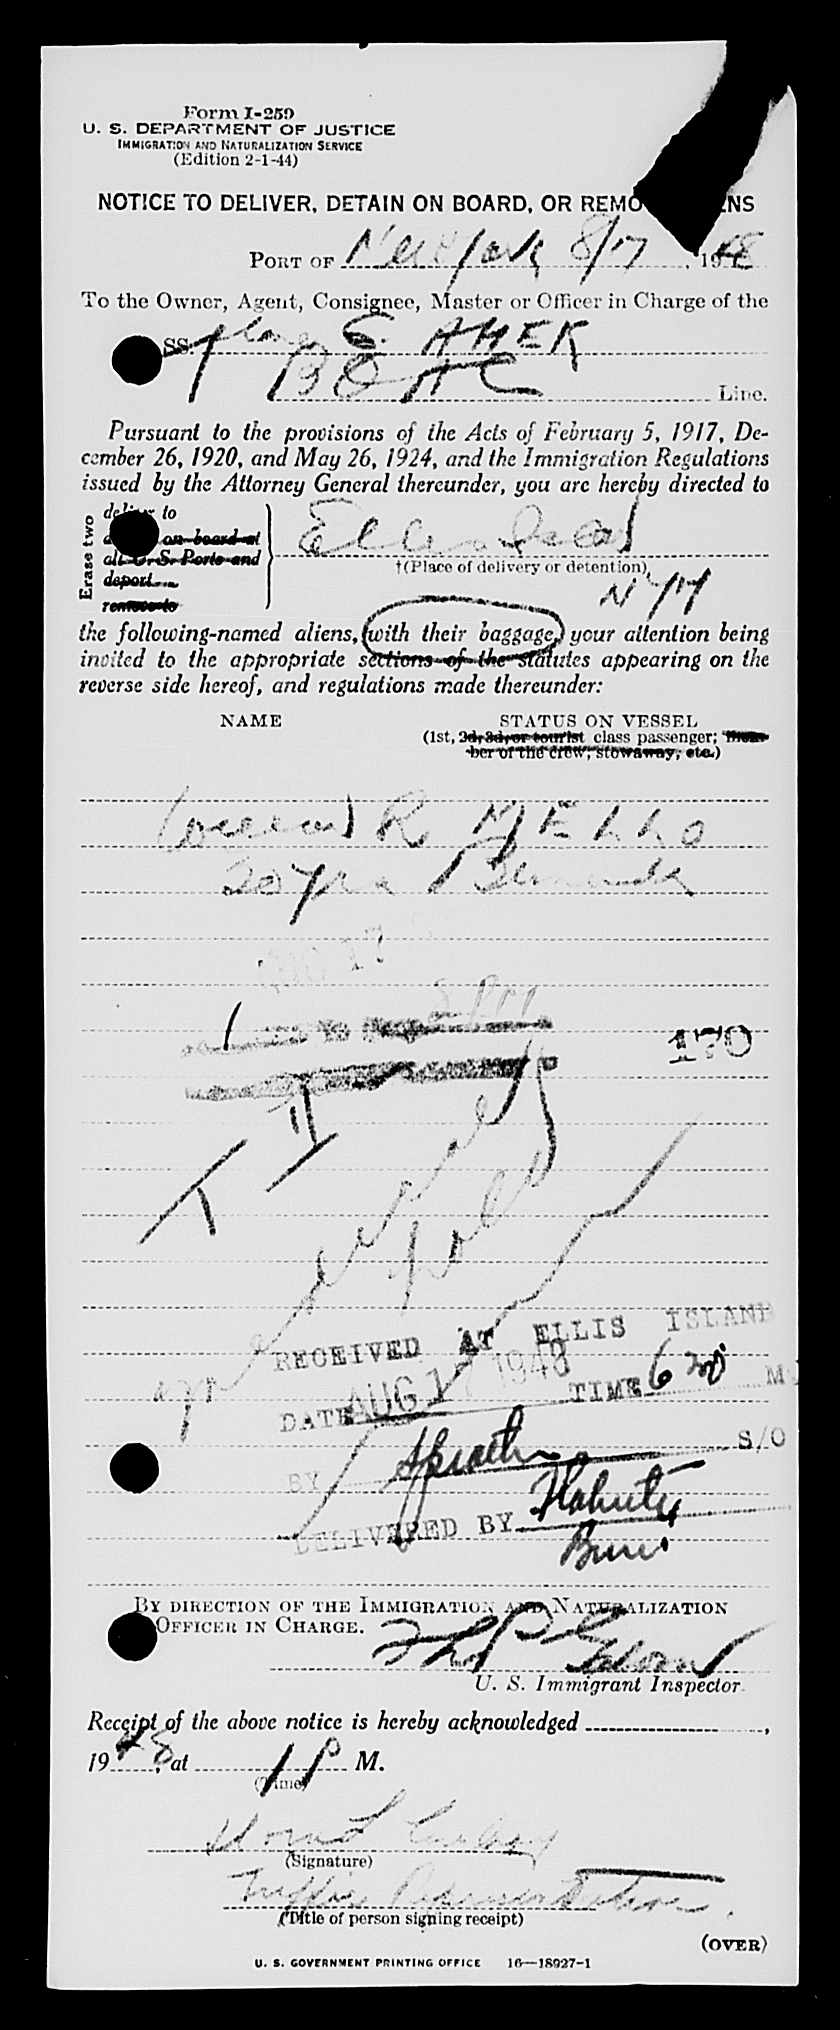 Form I-259
U. S. DEPARTMENT OF JUSTICE
IMMIGRATION AND NATURALIZATION SERVICE
(Edition 2-1-44)
NOTICE TO DELIVER, DETAIN ON BOARD, OR REMO NS
PORT OF New York 8/17, 1948
To the Owner, Agent, Consignee, Master or Officer in Charge of the
SS. plane G. AHEK
BOAC Line.
Pursuant to the provisions of the Acts of February 5, 1917, De-
cember 26, 1920, and May 26, 1924, and the Immigration Regulations
issued by the Attorney General thereunder, you are hereby directed to
Erase two
deliver to
on board at
all U.S. Ports and
deport
remove to
Ellis Island
†(Place of delivery or detention)
NYH
the following-named aliens, with their baggage, your attention being
invited to the appropriate sections of the statutes appearing on the
reverse side hereof, and regulations made thereunder:
NAME STATUS ON VESSEL
(1st, 2d, 3d, or tourist class passenger; mem-
ber of the crew, stowaway, etc.)
R MELLO
20 yrs / Bermuda
17
2 PM
170
RECEIVED AT ELLIS ISLAND
DATE AUG 17 1948 TIME 6 M
BY S/O
DELIVERED BY
BY DIRECTION OF THE IMMIGRATION AND NATURALIZATION
OFFICER IN CHARGE.
U. S. Immigrant Inspector.
Receipt of the above notice is hereby acknowledged ,
1948, at 1 P M.
(Time)
(Signature)
Traffic Representative.
(Title of person signing receipt)
(OVER)
U. S. GOVERNMENT PRINTING OFFICE 16—18927-1